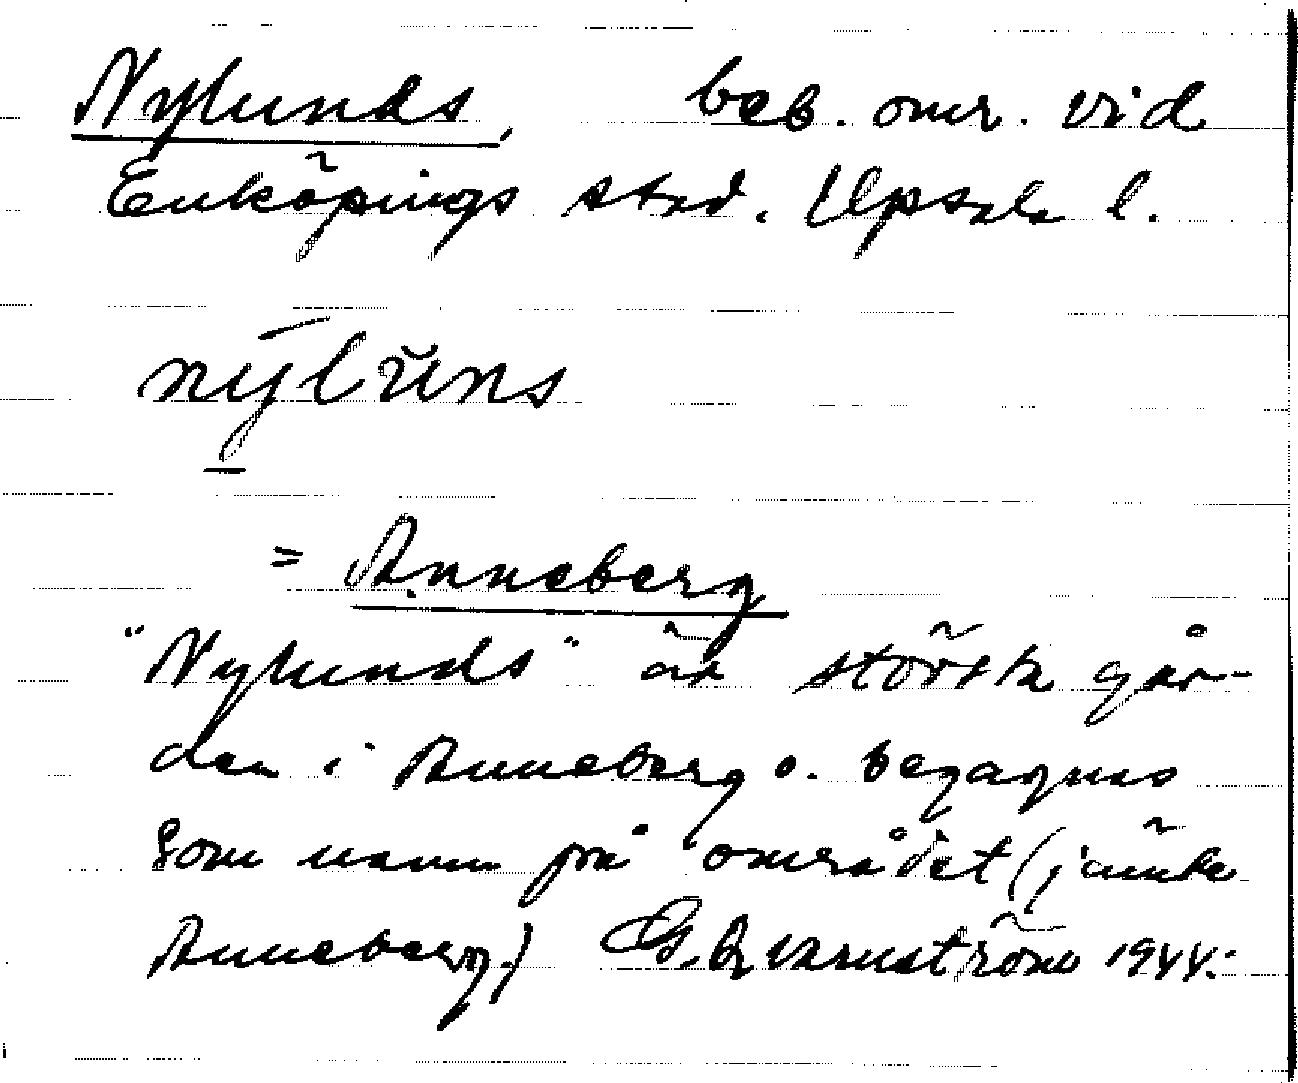 Nylunds, beb. omr. vid
Enköpings stad. Upsala l.
nȳlŭns
= Anneberg
"Nylunds" är största går-
den i Anneberg o. begagnas
som namn på området (jämte
Anneberg.) G. Qvarnström 1944.